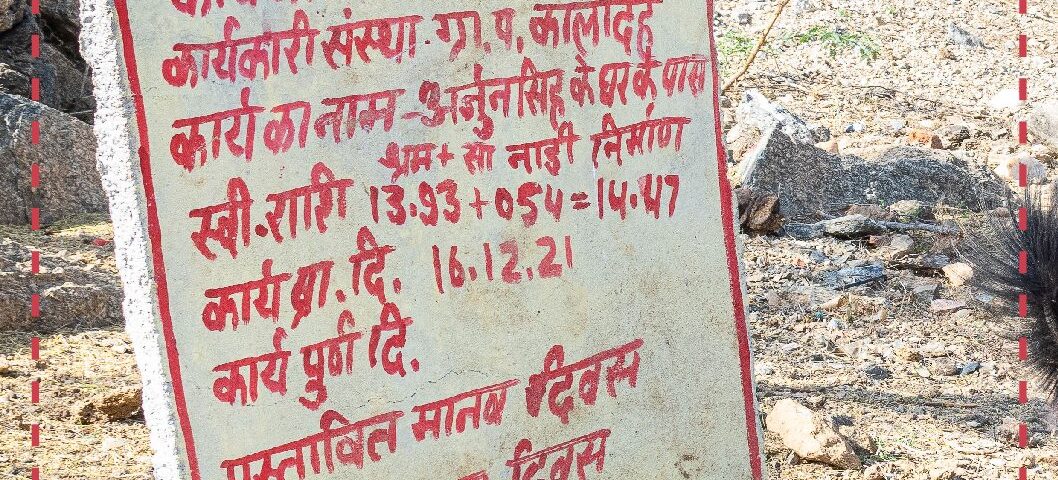 कार्यकारी संस्था - ग्रा. प. कालादेह
कार्य का नाम - अर्जुनसिंह के घर के पास
श्रम + सा नाडी निर्माण
स्वी. राशि 13.93 + 054 = 14.47
कार्य प्रा. दि. 16.12.21
कार्य पुर्ण दि.
प्रस्तावित मानव दिवस
दिवस